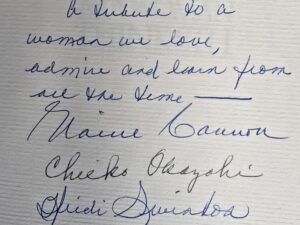 a tribute to a
woman we love,
admire and learn from
all the time —
Elaine Cannon
Chieko Okazaki
Heidi Swinton